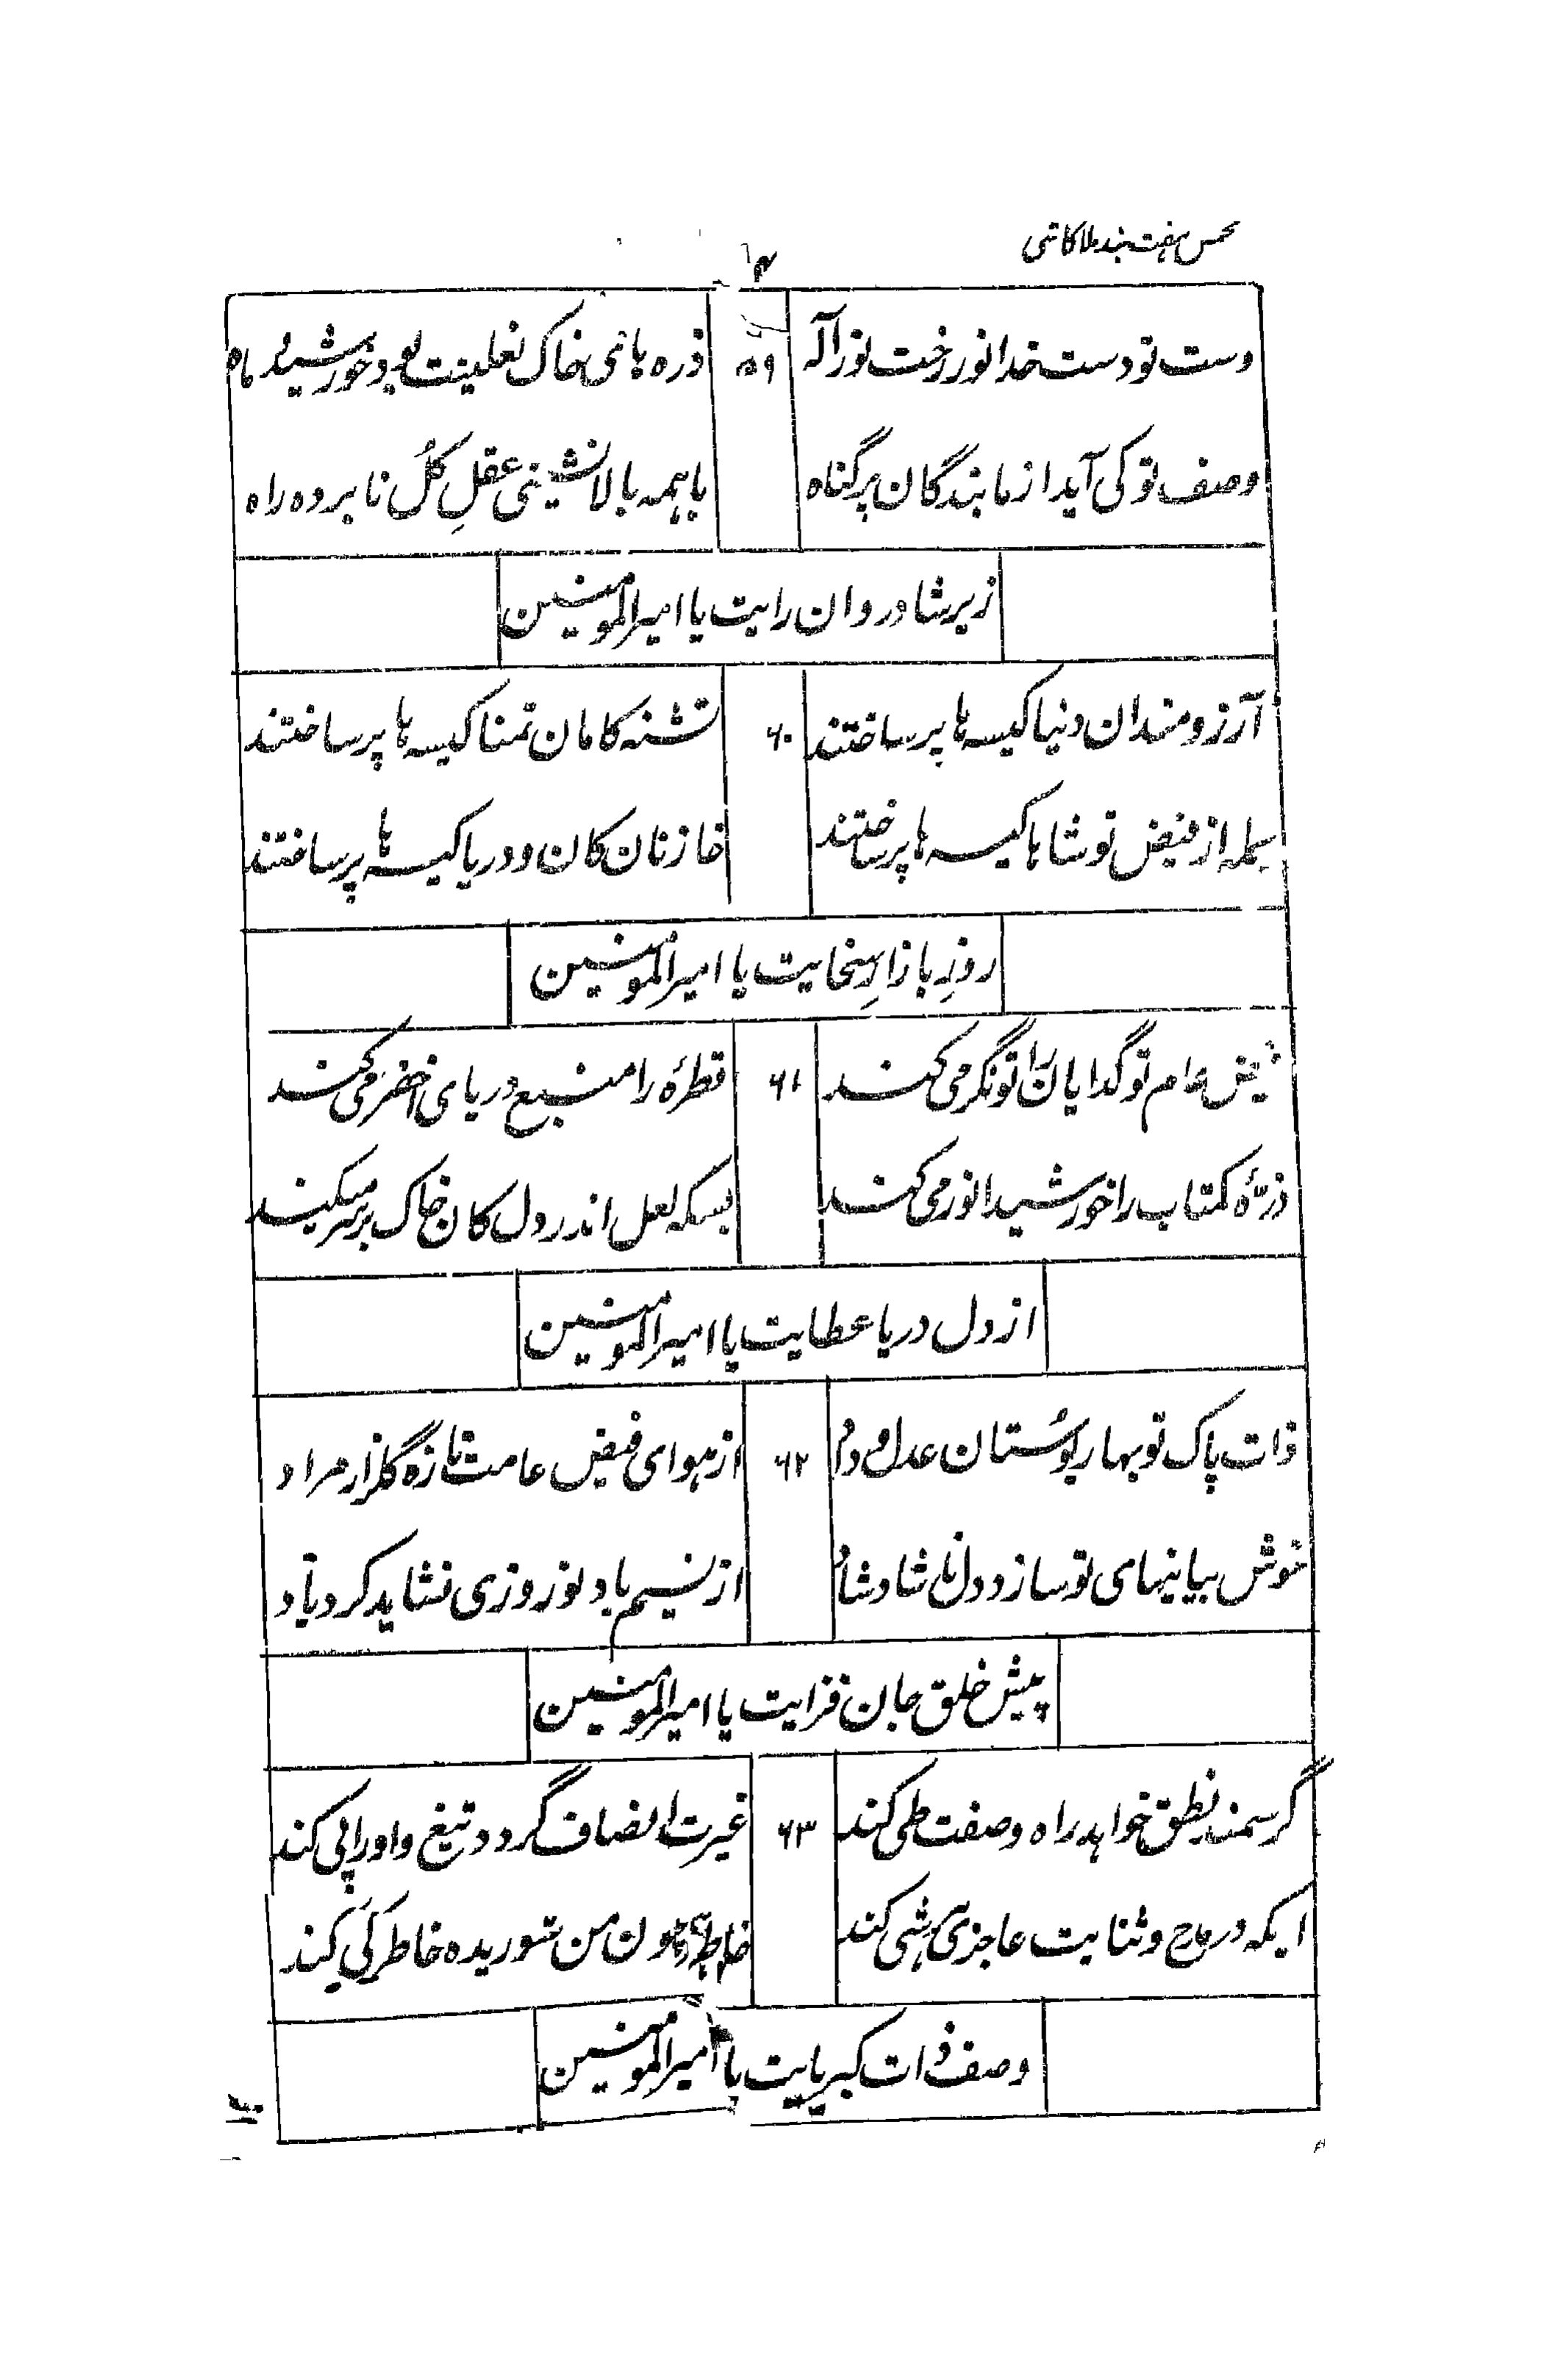 مخمس ہفت بند ملا کاشی
دست تو دست خدا نور رخت نور آلہ ۵۹ ذرہ ہائی خاک نعلینت بود خورشید و ماہ
وصف تو کی آید از ما بندگان پر گناہ باہمہ بالا نشینی عقلِ کُل نابردہ راہ
زیر شادروان رایت یا امیر المومنین
آرزومندان دنیا کیسہ ہا پر ساختند ۶۰ تشنہ کامان تمنا کیسہ ہا پر ساختند
جملہ از فیض تو شاہا کیسہ ہا پر ساختند خازنان کان و دریا کیسہ ہا پر ساختند
روزِ بازارِ سخایت یا امیر المومنین
فیض عام تو گدایان را تونگر می کند ۶۱ قطرۂ را منبع دریای اخضر می کند
ذرّۂ کمتاب را خورشید انور می کند بسکہ لعل اندر دل کان خاک بر سر میکند
از دل دریا عطایت یا امیر المومنین
ذات پاک تو بہار بوُستان عدل و داد ۶۲ از ہوای فیض عامت تازہ گلزار مراد
خوش بیانیہای تو سازد دل ناشاد شاد از نسیم باد نوروزی نشاید کرد یاد
پیش خلق جان فزایت یا امیر المومنین
گر سمند نطق خواہد راہ وصفت طی کند ۶۳ غیرت انصاف گردد تیغ و اورا پی کند
ایکہ در مدح و ثنایت عاجزی ہر شی کند خاطر من شوریدہ خاطر کَی کند
وصف ذات کبریایت یا امیر المومنین